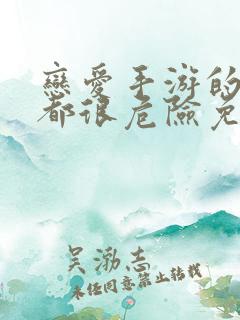 戀愛手游的
都很危險免
吴渤志
未经同意禁止转载